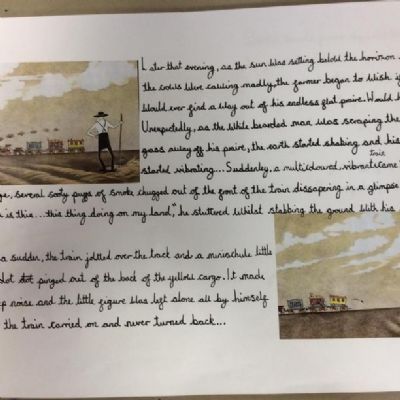 Later that evening, as the sun was setting behold the horizon
the cows were cawing madly, the farmer began to wish if
would ever find a way out of his endless flat prairie. Would h
Unexpectedly, as the white bearded man was scraping the
gass away off his pairie, the earth started shaking and his
train
started vibrating... Suddenley, a multicoloured, vibrant came
ge, several sooty pugs of smoke chugged out of the front of the train dissapering in a glimpse
is this... this thing doing on my land" he stuttered whilst stabbing the ground with his
a sudden, the train jolted over the track and a miniscule little
dot pinged out of the back of the yellow cargo. It made
ep noise and the little figure was left alone all by himself
the train carried on and never turned back...